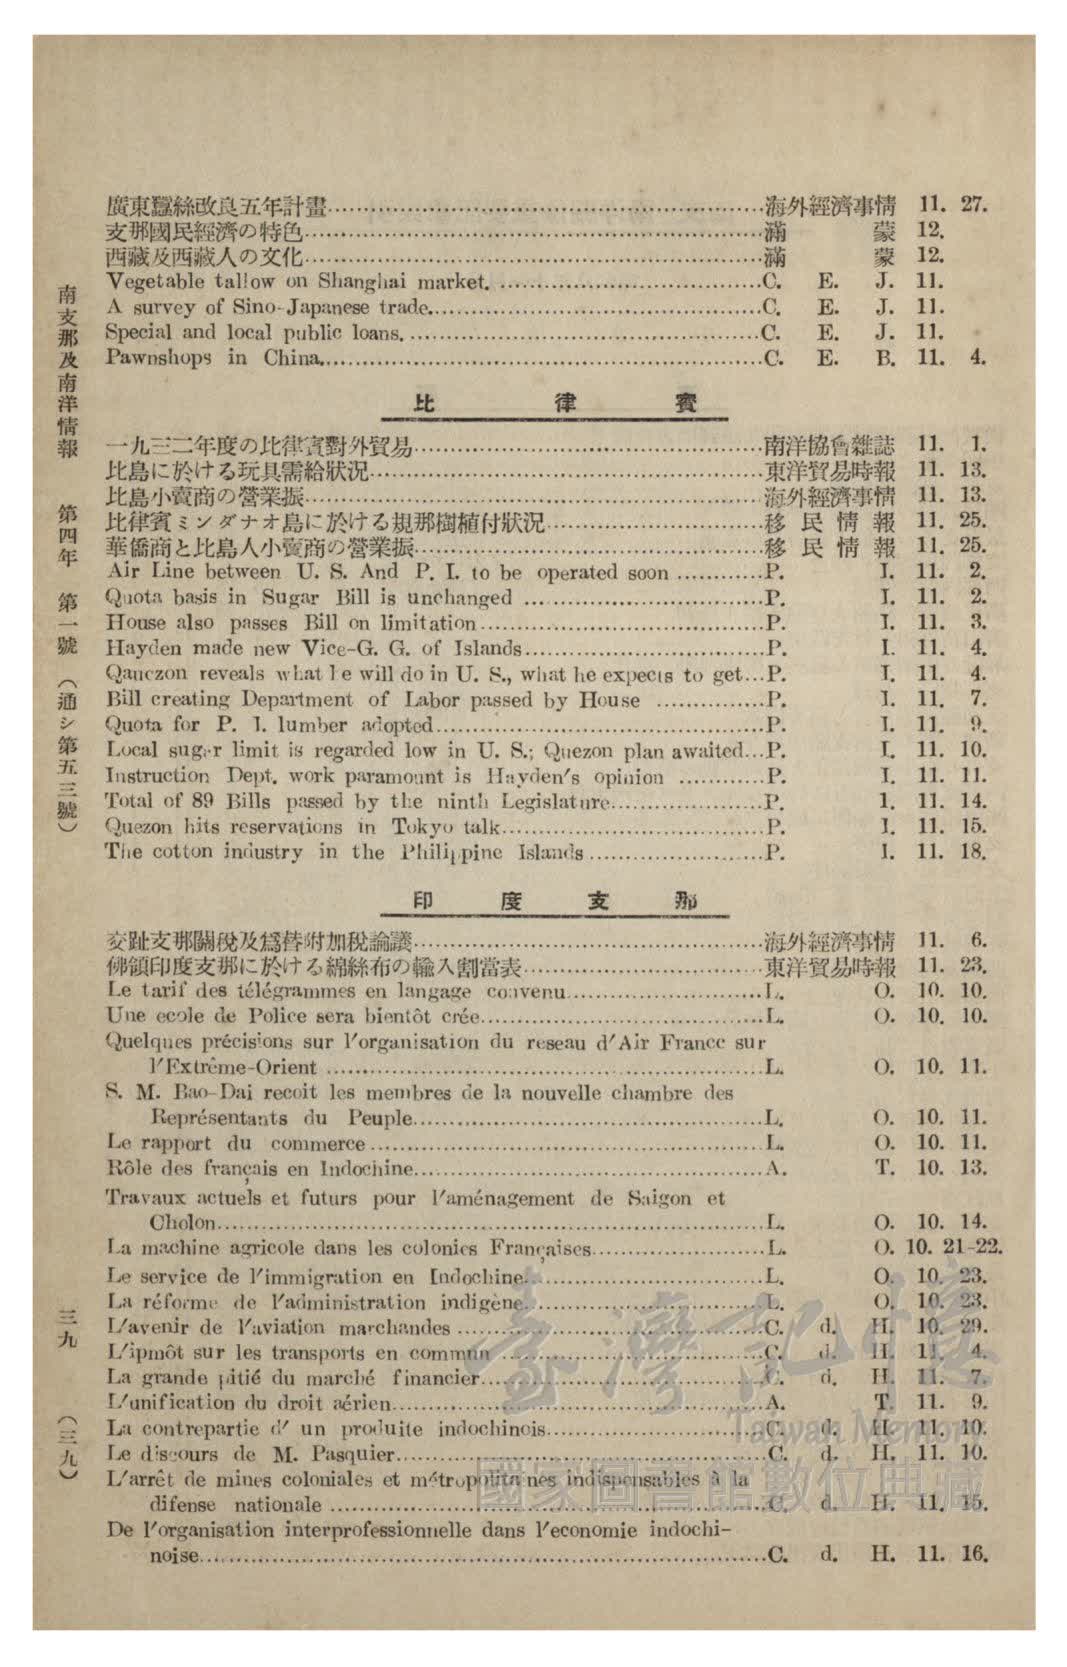 廣東蠶絲改良五年計畫……海外經濟事情 11. 27.
支那國民經濟の特色……滿蒙 12.
西藏及西藏人の文化……滿蒙 12.
Vegetable tallow on Shanghai market. ……C. E. J. 11.
A survey of Sino-Japanese trade.……C. E. J. 11.
Special and local public loans. ……C. E. J. 11.
Pawnshops in China.……C. E. B. 11. 4.
比律賓
一九三二年度の比律賓對外貿易……南洋協會雜誌 11. 1.
比島に於ける玩具需給狀況……東洋貿易時報 11. 13.
比島小賣商の營業振……海外經濟事情 11. 13.
比律賓ミンダナオ島に於ける規那樹植付狀況……移民情報 11. 25.
華僑商と比島人小賣商の營業振……移民情報 11. 25.
Air Line between U. S. And P. I. to be operated soon ……P. I. 11. 2.
Quota basis in Sugar Bill is unchanged ……P. I. 11. 2.
House also passes Bill on limitation……P. I. 11. 3.
Hayden made new Vice-G. G. of Islands……P. I. 11. 4.
Qauezon reveals what he will do in U. S., what he expects to get…P. I. 11. 4.
Bill creating Department of Labor passed by House ……P. I. 11. 7.
Quota for P. I. lumber adopted……P. I. 11. 9.
Local sugar limit is regarded low in U. S.; Quezon plan awaited…P. I. 11. 10.
Instruction Dept. work paramount is Hayden's opinion ……P. I. 11. 11.
Total of 89 Bills passed by the ninth Legislature……P. 1. 11. 14.
Quezon hits reservations in Tokyo talk……P. I. 11. 15.
The cotton industry in the Philippine Islands……P. I. 11. 18.
印度支那
交趾支那關稅及爲替附加稅論議……海外經濟事情 11. 6.
佛領印度支那に於ける綿絲布の輸入割當表……東洋貿易時報 11. 23.
Le tarif des télégrammes en langage convenu……L. O. 10. 10.
Une ecole de Police sera bientôt crée……L. O. 10. 10.
Quelques précisions sur l'organisation du reseau d'Air France sur
l'Extrême-Orient ……L. O. 10. 11.
S. M. Bao-Dai recoit les membres de la nouvelle chambre des
Représentants du Peuple……L. O. 10. 11.
Le rapport du commerce……L. O. 10. 11.
Rôle des français en Indochine……A. T. 10. 13.
Travaux actuels et futurs pour l'aménagement de Saigon et
Cholon……L. O. 10. 14.
La machine agricole dans les colonies Françaises……L. O. 10. 21-22.
Le service de l'immigration en Indochine……L. O. 10. 23.
La réforme de l'administration indigène……L. O. 10. 23.
L'avenir de l'aviation marchandes ……C. d. H. 10. 29.
L'ipmôt sur les transports en commun ……C. d. H. 11. 4.
La grande pitié du marché financier……C. d. H. 11. 7.
L'unification du droit aérien……A. T. 11. 9.
La contrepartie d' un produite indochinois……C. d. H. 11. 10.
Le discours de M. Pasquier……C. d. H. 11. 10.
L'arrêt de mines coloniales et métropolitaines indispensables à la
difense nationale ……C. d. H. 11. 15.
De l'organisation interprofessionnelle dans l'economie indochi-
noise……C. d. H. 11. 16.
南支那及南洋情報 第四年 第一號(通シ第五三號) 三九 (三九)
臺灣記憶
Taiwan Memory
國家圖書館數位典藏